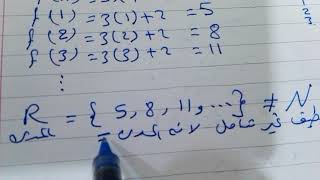 f(1) = 3(1)+2 = 5
f(2) = 3(2)+2 = 8
f(3) = 3(3)+2 = 11
⋮
R = { 5, 8, 11, ...} ≠ N
المدى
تطبيق غير شامل لانه المدى =
1
2
3